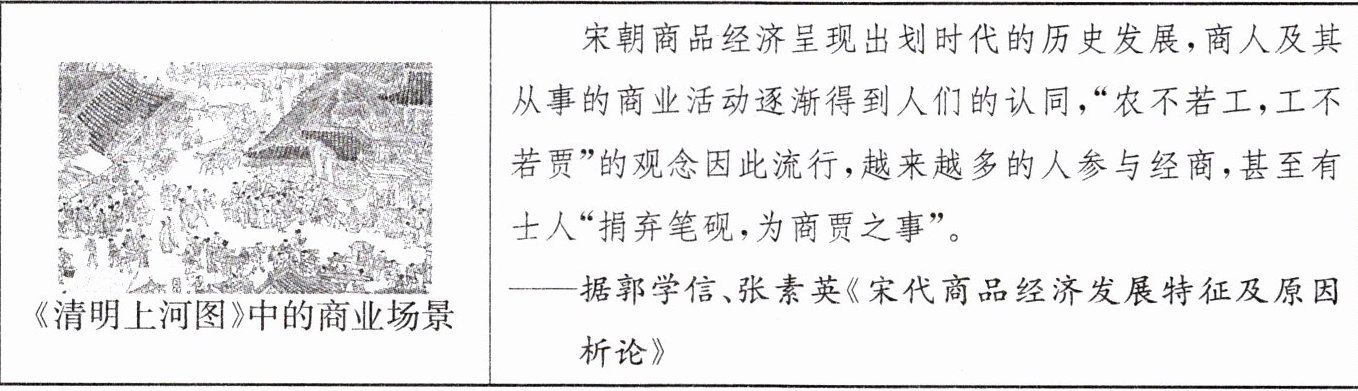 《清明上河图》中的商业场景
宋朝商品经济呈现出划时代的历史发展，商人及其
从事的商业活动逐渐得到人们的认同，“农不若工，工不
若贾”的观念因此流行，越来越多的人参与经商，甚至有
士人“捐弃笔砚，为商贾之事”。
——据郭学信、张素英《宋代商品经济发展特征及原因
析论》